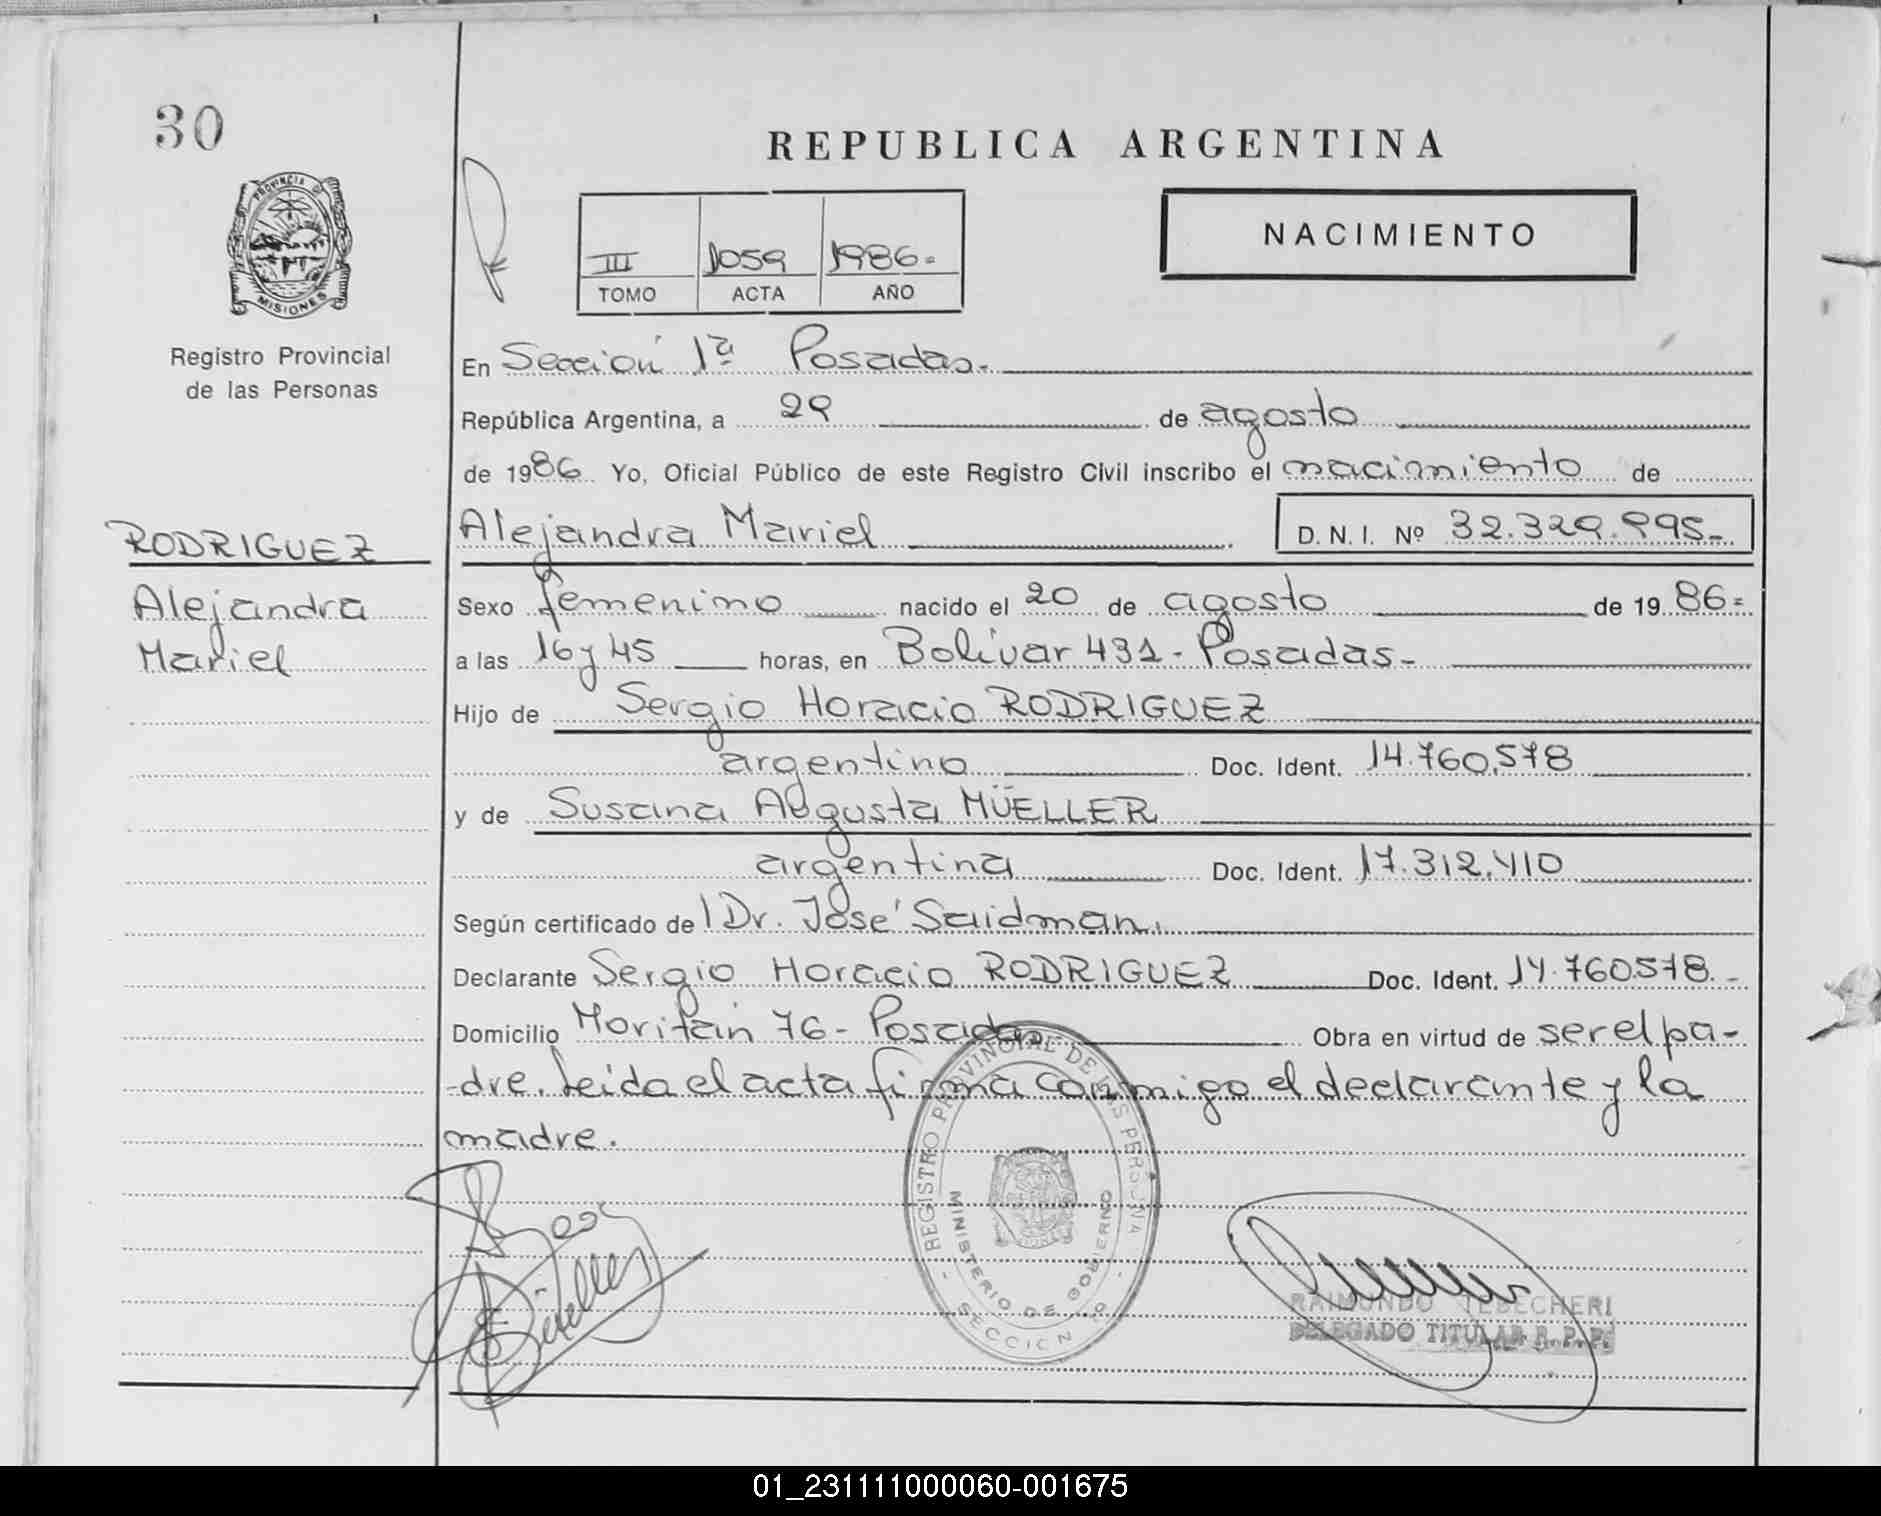 30
REPUBLICA ARGENTINA
PROVINCIA DE
MISIONES
Registro Provincial
de las Personas
III 1059 1986.-
TOMO ACTA AÑO
NACIMIENTO
En Sección 1ª Posadas.-
República Argentina, a 29 de agosto
de 1986 Yo, Oficial Público de este Registro Civil inscribo el nacimiento de
RODRIGUEZ
Alejandra
Mariel
Alejandra Mariel D. N. I. Nº 32.329.995.-
Sexo femenino nacido el 20 de agosto de 1986=
a las 16 y 45 horas, en Bolívar 431 - Posadas.-
Hijo de Sergio Horacio RODRIGUEZ
argentino Doc. Ident. 14.760.578
y de Susana Augusta MÜELLER
argentina Doc. Ident. 17.312.410
Según certificado de Dr. José Saidman.
Declarante Sergio Horacio RODRIGUEZ Doc. Ident. 14.760578.-
Domicilio Posadas Obra en virtud de ser el pa-
-dre. Leida el acta firma conmigo el declarante y la
madre.
REGISTRO PROVINCIAL DE LAS PERSONAS
MINISTERIO DE GOBIERNO
SECCION
RAIMUNDO TEBECHERI
DELEGADO TITULAR R. P. P.
01_231111000060-001675